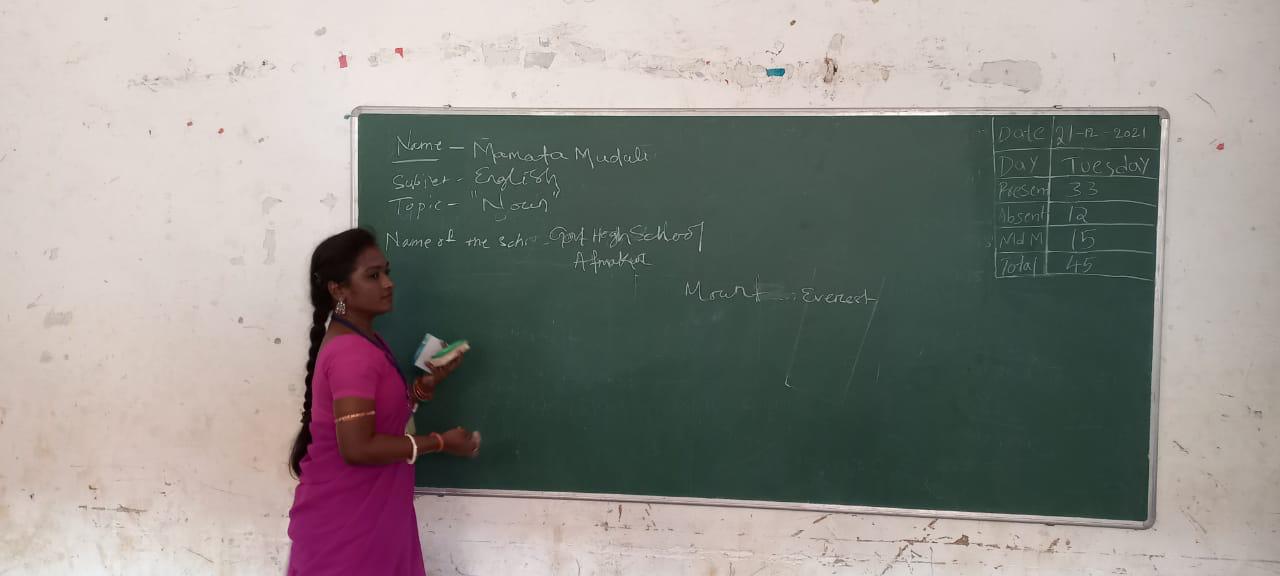 Name - Mamata Muduli
Subject - English
Topic - "Noun"
Name of the Scho Govt Hegh School
Mount ... Everest
Date 21-12-2021
Day Tuesday
Present 33
Absent 12
MdM 15
Total 45